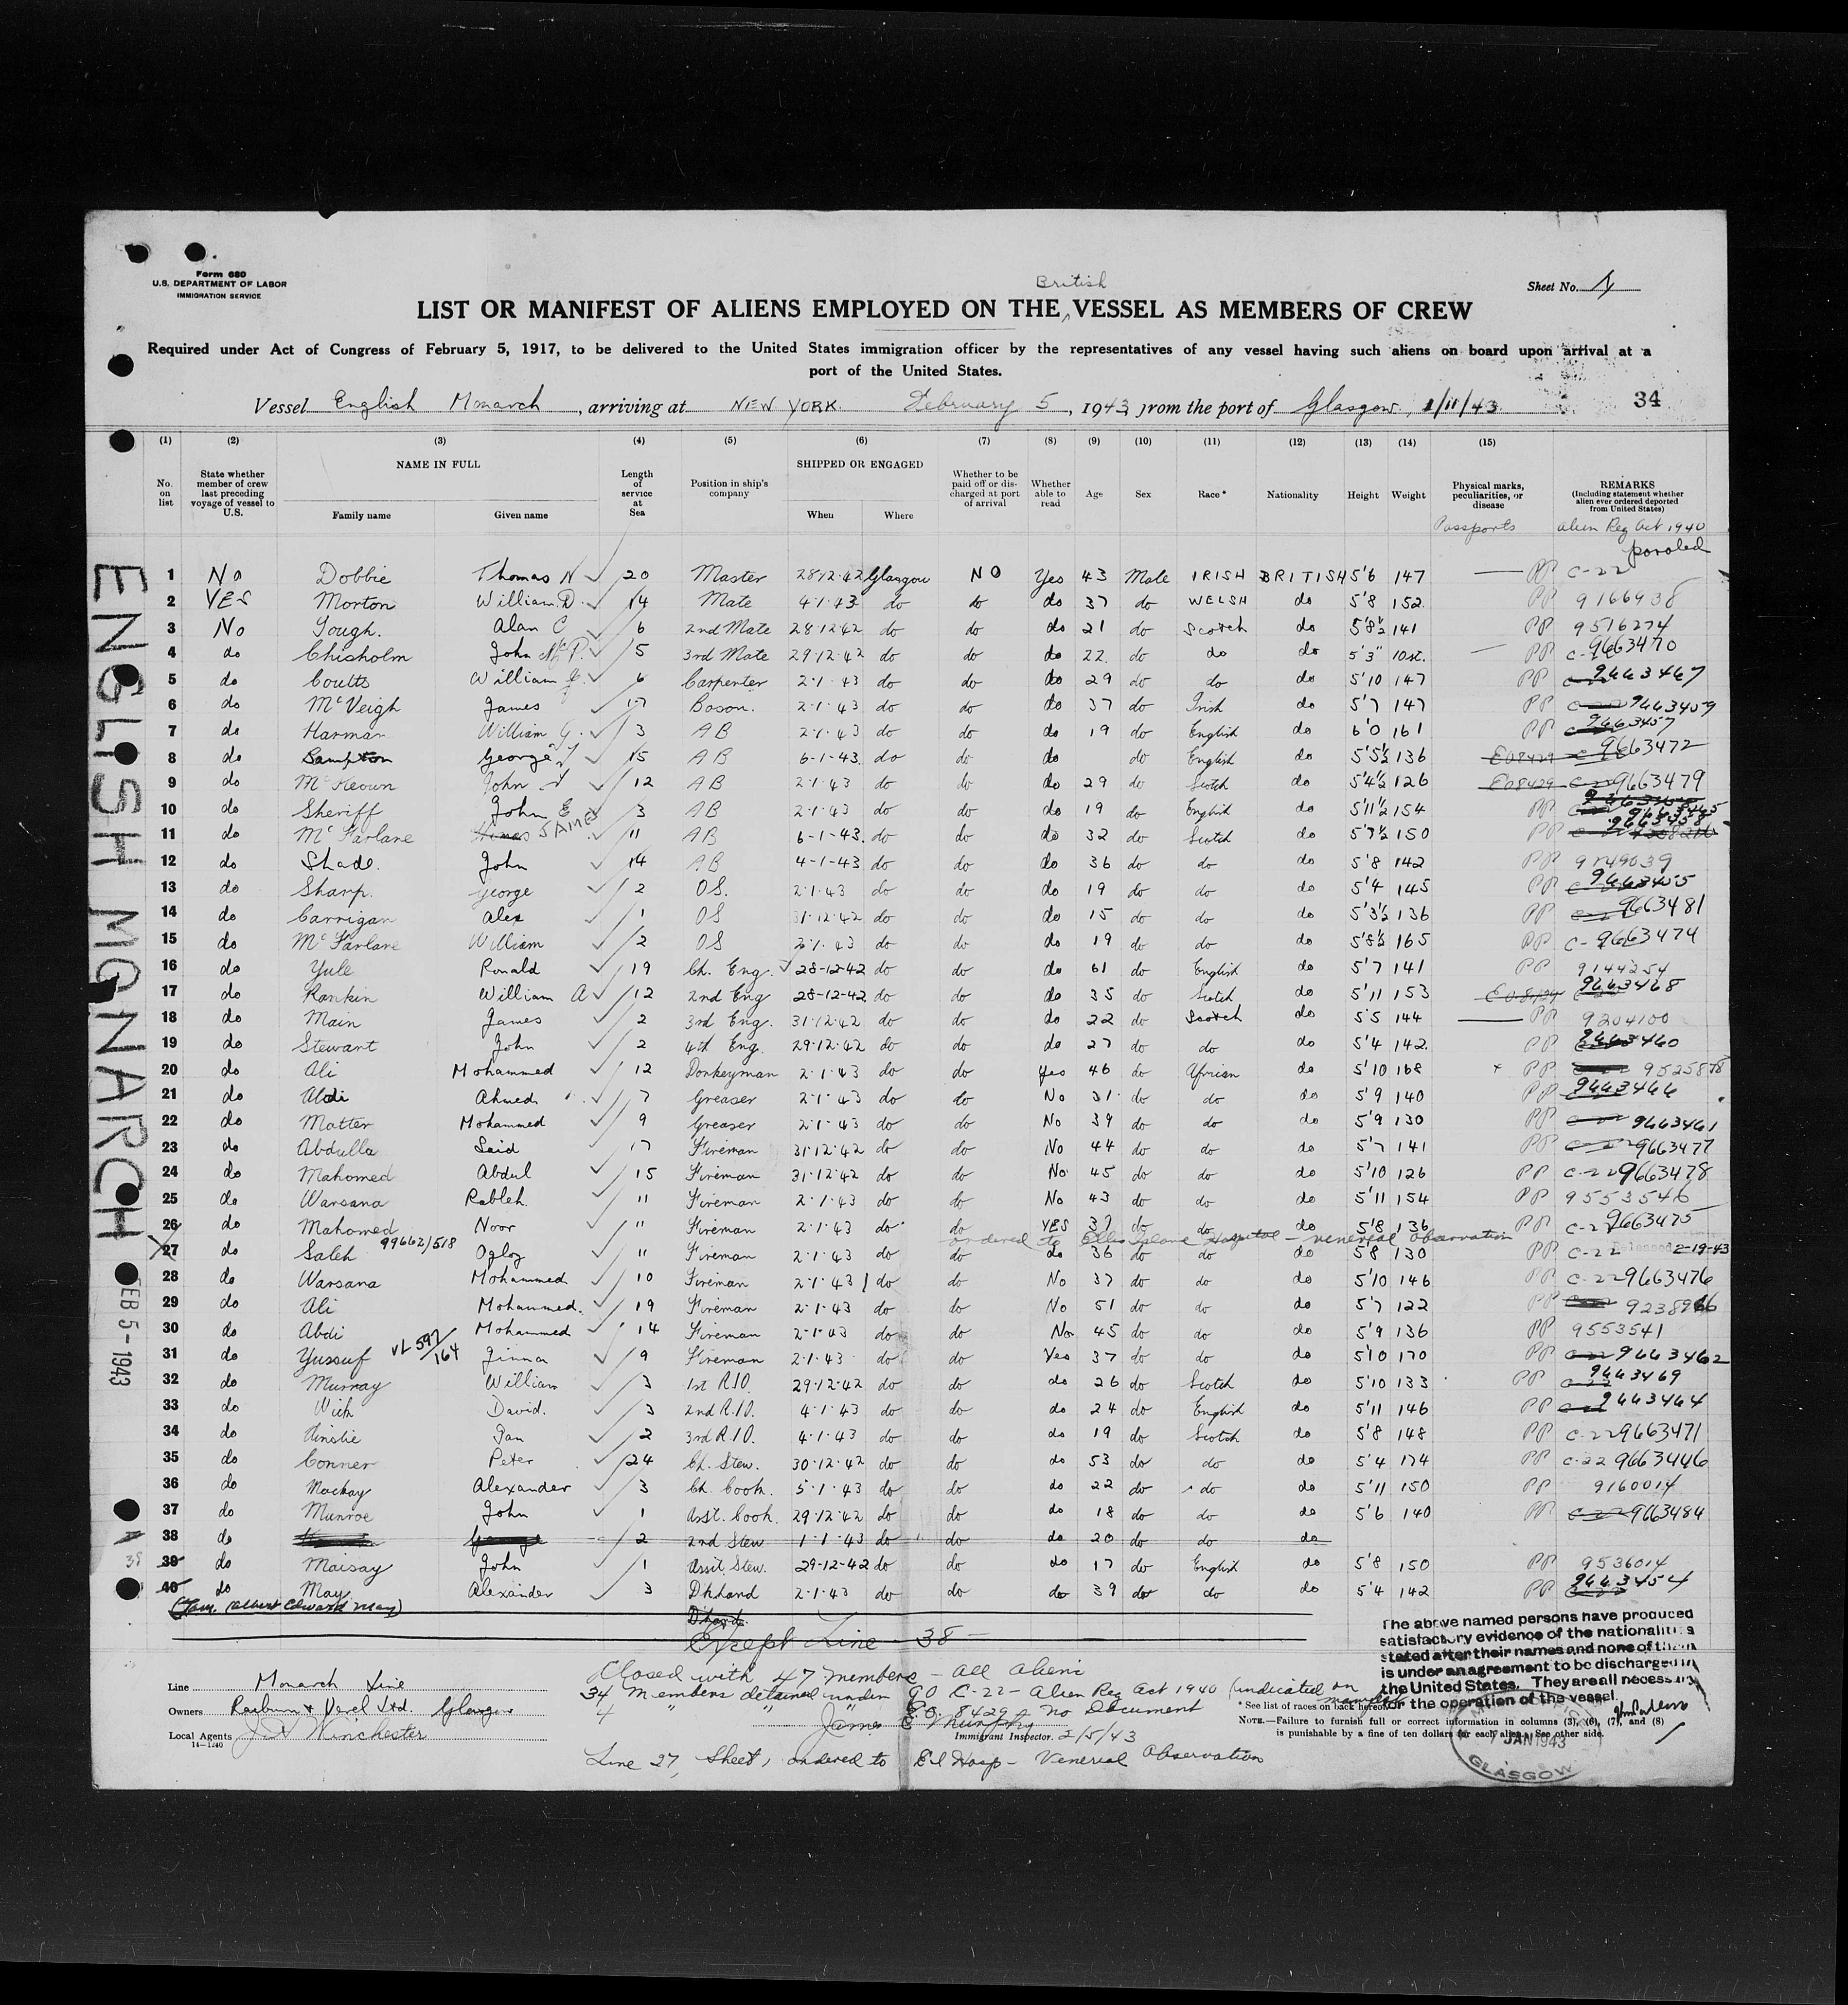 Form 680
U.S. DEPARTMENT OF LABOR
IMMIGRATION SERVICE
Sheet No. 1
British
LIST OR MANIFEST OF ALIENS EMPLOYED ON THE VESSEL AS MEMBERS OF CREW
Required under Act of Congress of February 5, 1917, to be delivered to the United States immigration officer by the representatives of any vessel having such aliens on board upon arrival at a
port of the United States.
Vessel English Monarch, arriving at NEW YORK. February 5, 1943, from the port of Glasgow, 1/11/43.
34
(1) (2) (3) (4) (5) (6) (7) (8) (9) (10) (11) (12) (13) (14) (15)
No. on list
State whether member of crew last preceding voyage of vessel to U.S.
NAME IN FULL
Family name
Given name
Length of service at Sea
Position in ship's company
SHIPPED OR ENGAGED
When
Where
Whether to be paid off or discharged at port of arrival
Whether able to read
Age
Sex
Race*
Nationality
Height
Weight
Physical marks, peculiarities, or disease
Passports
REMARKS
(Including statement whether alien ever ordered deported from United States)
alien Reg Act 1940
paroled
1 No Dobbie Thomas N 20 Master 28.12.42 Glasgow NO Yes 43 Male IRISH BRITISH 5'6 147 PP C-22
2 YES Morton William D. 14 Mate 4.1.43 do do do 37 do WELSH do 5'8 152 PP 9166938
3 No Gough. Alan C 6 2nd Mate 28.12.42 do do do 21 do Scotch do 5'8½ 141 PP 9516274
4 do Chisholm John McP. 5 3rd Mate 29.12.42 do do do 22. do do do 5'3" 10st. PP C- 9663470
5 do Coutts William J. 6 Carpenter 2.1.43 do do do 29 do do do 5'10 147 PP 9663467
6 do McVeigh James 17 Boson. 2.1.43 do do do 37 do Irish do 5'7 147 PP 9663459
7 do Harman William G. 3 AB 2.1.43 do do do 19 do English do 6'0 161 PP 9663457
8 do Sampson George 15 AB 6-1-43. do do do do English do 5'5½ 136 E08429 9663472
9 do McKeown John 12 AB 2.1.43 do do do 29 do Scotch do 5'4½ 126 E08429 9663479
10 do Sheriff John E 3 AB 2.1.43 do do do 19 do English do 5'11½ 154 PP 9663465
11 do McFarlane JAMES 11 AB 6-1-43. do do do 32 do Scotch do 5'7½ 150 PP 9663458
12 do Shade. John 14 AB 4-1-43 do do do 36 do do do 5'8 142 PP
13 do Sharp. George 2 OS. 2.1.43 do do do 19 do do do 5'4 145 PP 9663455
14 do Carrigan Alex 1 OS 31.12.42 do do do 15 do do do 5'3½ 136 PP 9663481
15 do McFarlane William 2 OS 2.1.43 do do do 19 do do do 5'8½ 165 PP C- 9663474
16 do Yule Ronald 19 Ch. Eng. 28-12-42 do do do 61 do English do 5'7 141 PP 9144254
17 do Rankin William A 12 2nd Eng 28-12-42 do do do 35 do Scotch do 5'11 153 E08429 9663468
18 do Main James 2 3rd Eng. 31.12.42 do do do 22 do Scotch do 5'5 144 PP 9204100
19 do Stewart John 2 4th Eng. 29.12.42 do do do 27 do do do 5'4 142. PP 9663460
20 do Ali Mohammed 12 Donkeyman 2.1.43 do do Yes 46 do African do 5'10 168 PP 9525878
21 do Abdi Ahmed 7 Greaser 2.1.43 do do No 31 do do do 5'9 140 PP 9663466
22 do Matter Mohammed 9 Greaser 2.1.43 do do No 39 do do do 5'9 130 PP 9663461
23 do Abdulla Said 17 Fireman 31.12.42 do do No 44 do do do 5'7 141 PP 9663477
24 do Mahomed Abdul 15 Fireman 31.12.42 do do No 45 do do do 5'10 126 PP C-22 9663478
25 do Warsana Rableh 11 Fireman 2.1.43 do do No 43 do do do 5'11 154 PP 9553546
26 do Mahomed Noor 11 Fireman 2.1.43 do do YES 37 do do do 5'8 136 PP C-22 9663475
ordered to Ellis Island Hospital - venereal observation
27 do Saleh 99662/518 Ogloz 11 Fireman 2.1.43 do do do 36 do do do 5'8 130 PP C-22 Released 2-19-43
28 do Warsana Mohammed 10 Fireman 2.1.43 do do No 37 do do do 5'10 146 PP C-22 9663476
29 do Ali Mohammed. 19 Fireman 2.1.43 do do No 51 do do do 5'7 122 PP 9238966
30 do Abdi Mohammed 14 Fireman 2.1.43 do do No 45 do do do 5'9 136 PP 9553541
31 do Yussuf VL 592/164 Jinna 9 Fireman 2.1.43 do do Yes 37 do do do 5'10 170 PP 9663462
32 do Murray William 3 1st R/O. 29.12.42 do do do 26 do Scotch do 5'10 133 PP 9663469
33 do Wich David. 3 2nd R/O. 4.1.43 do do do 24 do English do 5'11 146 PP 9663464
34 do Ainslie Ian 2 3rd R/O. 4.1.43 do do do 19 do Scotch do 5'8 148 PP C-22 9663471
35 do Conner Peter 24 Ch. Stew. 30.12.42 do do do 53 do do do 5'4 174 PP C-22 9663446
36 do Mackay Alexander 3 Ch. Cook. 5.1.43 do do do 22 do do do 5'11 150 PP 9160014
37 do Munroe John 1 Asst. Cook. 29.12.42 do do do 18 do do do 5'6 140 PP C-22 9663484
38 do 2 2nd Stew 1.1.43 do do do 20 do do do
38 39 do Maisay John 1 Assit. Stew. 29-12-42 do do do 17 do English do 5'8 150 PP 9536014
40 do May Alexander 3 Dkhand 2.1.43 do do do 39 do do do 5'4 142 PP 9663454
(Albert Edward May)
Except Line - 38 -
ENGLISH MONARCH
FEB 5-1943
Closed with 47 members - all aliens
34 members detained under GO C-22 - Alien Reg Act 1940 (indicated on manifest
4 " " " E.O. 8429 - No Document
James E Murphy 2/5/43
Immigrant Inspector.
Line 27, Sheet 1 ordered to E.I Hosp - Venereal Observation
Line Monarch Line
Owners Raeburn & Verel Ltd. Glasgow
Local Agents Winchester
14-1240
The above named persons have produced
satisfactory evidence of the nationalities
stated after their names and none of them
is under an agreement to be discharged in
the United States. They are all necessary
for the operation of the vessel.
* See list of races on back hereof.
NOTE.—Failure to furnish full or correct information in columns (3), (6), (7), and (8)
is punishable by a fine of ten dollars for each alien. See other side.
7 JAN 1943
GLASGOW